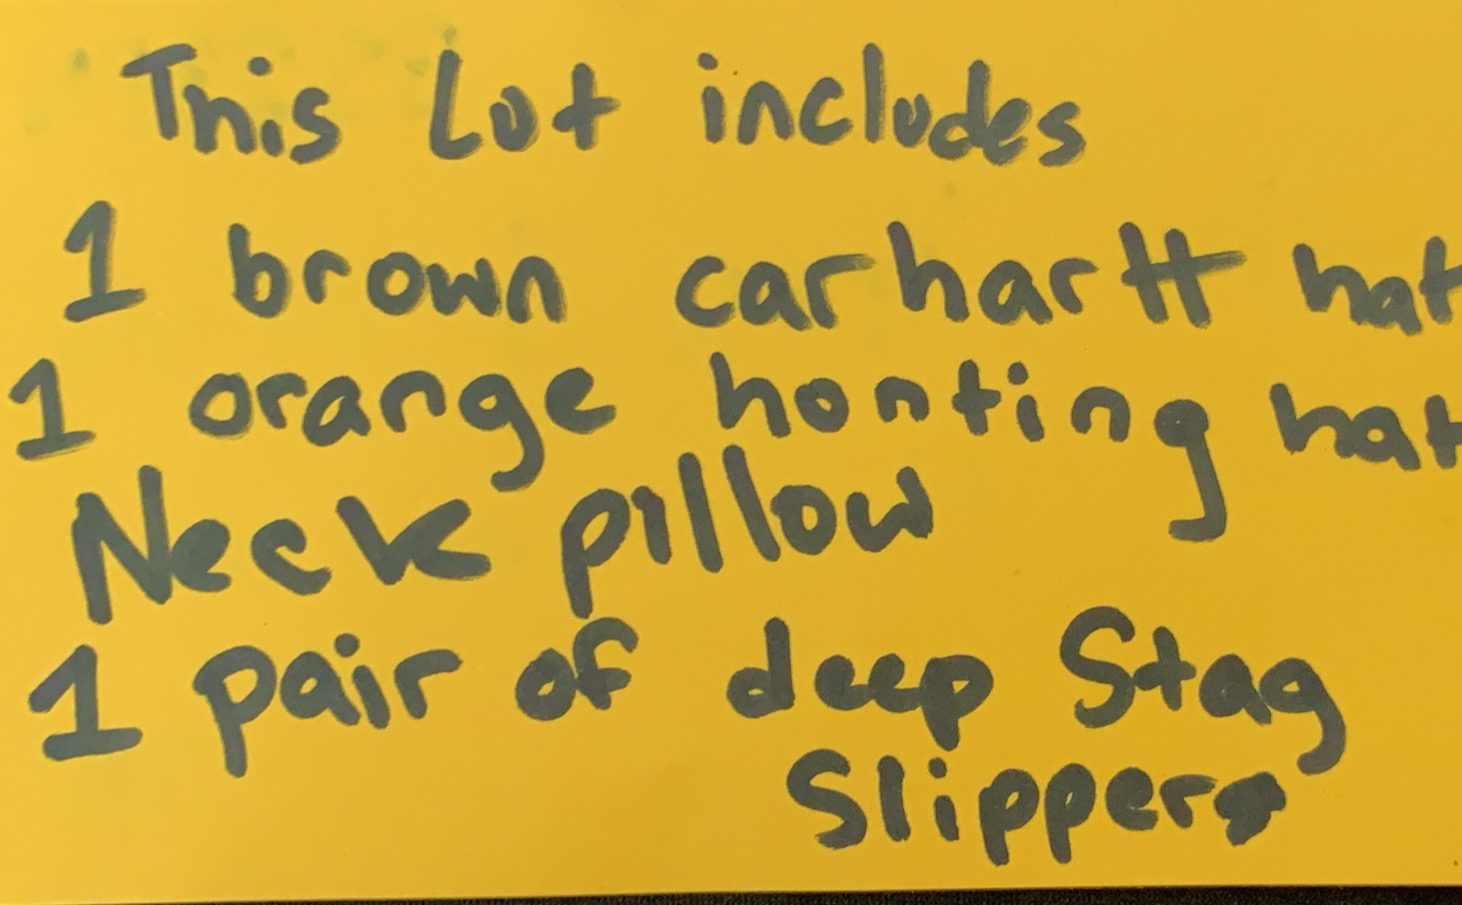 This Lot includes
1 brown carhartt hat
1 orange honting hat
Neck pillow
1 pair of deep Stag
Slippers